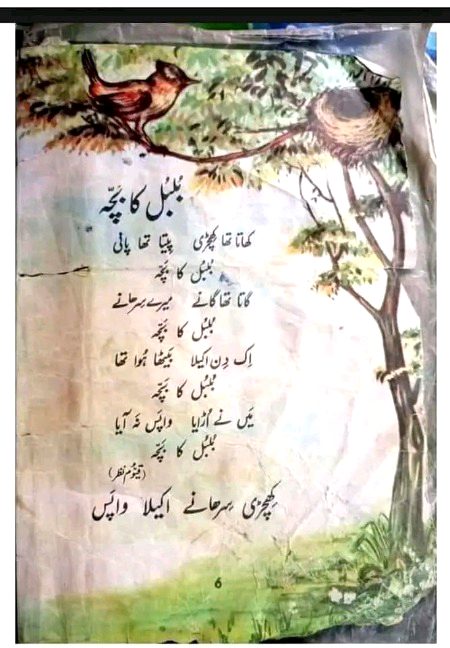 بُلبُل کا بَچّہ
کھاتا تھا کھچڑی پیتا تھا پانی
بُلبُل کا بَچّہ
گاتا تھا گانے میرے سِرھانے
بُلبُل کا بَچّہ
اِک دِن اکیلا بَیٹھا ہُوا تھا
بُلبُل کا بَچّہ
مَیں نے اُڑایا واپَس نَہ آیا
بُلبُل کا بَچّہ
(قیّوم نظر)
کِھچڑی سِرھانے اکیلا واپَس
6